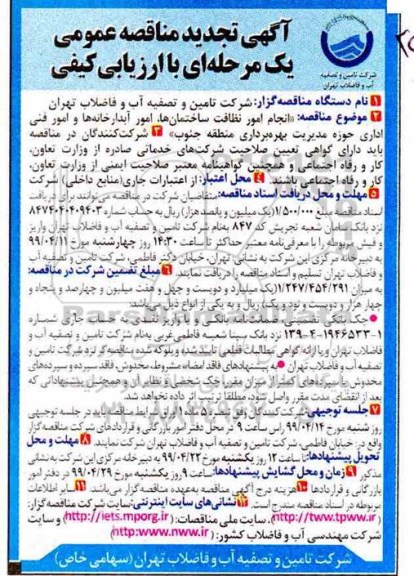 آگهی تجدید مناقصه عمومی
یک مرحله‌ای با ارزیابی کیفی
شرکت تامین و تصفیه
آب و فاضلاب تهران
1 نام دستگاه مناقصه‌گزار: شرکت تامین و تصفیه آب و فاضلاب تهران
2 موضوع مناقصه: «انجام امور نظافت ساختمان‌ها، امور آبدارخانه‌ها و امور فنی
اداری حوزه مدیریت بهره‌برداری منطقه جنوب» 3 شرکت‌کنندگان در مناقصه
باید دارای گواهی تعیین صلاحیت شرکت‌های خدماتی صادره از وزارت تعاون،
کار و رفاه اجتماعی و همچنین گواهینامه معتبر صلاحیت ایمنی از وزارت تعاون،
کار و رفاه اجتماعی باشند. 4 محل اعتبار: از اعتبارات جاری (منابع داخلی) شرکت
5 مهلت و محل دریافت اسناد مناقصه: متقاضیان شرکت در مناقصه می‌توانند برای دریافت
اسناد مناقصه مبلغ 1/500/000 (یک میلیون و پانصد هزار) ریال به حساب شماره 8474040409403
نزد بانک سامان شعبه تجریش کد 847 به‌نام شرکت تامین و تصفیه آب و فاضلاب تهران واریز
و فیش مربوطه را با معرفی‌نامه معتبر حداکثر تا ساعت 14:30 روز چهارشنبه مورخ 99/04/11
به دبیرخانه مرکزی این شرکت به نشانی: تهران، خیابان دکتر فاطمی، شرکت تامین و تصفیه آب
و فاضلاب تهران تسلیم و اسناد مناقصه را دریافت نمایند. 6 مبلغ تضمین شرکت در مناقصه:
به میزان 1/247/454/291 (یک میلیارد و دویست و چهل و هفت میلیون و چهارصد و پنجاه و
چهار هزار و دویست و نود و یک) ریال و به یکی از انواع ذیل می‌باشد:
چک بانکی تضمینی، ضمانت‌نامه بانکی و یا واریز نقدی به حساب جاری شماره
139-4-1946533-1 نزد بانک سینا شعبه فاطمی غربی به‌نام شرکت تامین و تصفیه آب و
فاضلاب تهران و یا ارائه گواهی مطالبات قطعی تایید شده و بلوکه شده مناقصه‌گر نزد شرکت تامین و
تصفیه آب و فاضلاب تهران • به پیشنهادهای فاقد امضاء، مشروط، مخدوش، فاقد سپرده و سپرده‌های
مخدوش یا سپرده‌های کمتر از میزان مقرر، چک شخصی و نظایر آن و همچنین پیشنهاداتی که
بعد از انقضای مدت مقرر واصل شود، مطلقا ترتیب اثر داده نخواهد شد.
7 جلسه توجیهی: شرکت‌کنندگان می‌توانند در جلسه توجیهی
روز شنبه مورخ 99/04/14 راس ساعت 9 در محل دفتر امور بازرگانی و قراردادهای شرکت
واقع در: خیابان فاطمی، شرکت تامین و تصفیه آب و فاضلاب تهران شرکت نمایند. 8 مهلت و محل
تحویل پیشنهادها: تا ساعت 12 روز یکشنبه مورخ 99/04/22 به دبیرخانه مرکزی این شرکت به نشانی
مذکور. 9 زمان و محل گشایش پیشنهادها: ساعت 9 روز یکشنبه مورخ 99/04/29 در دفتر امور
بازرگانی و قراردادها 10 هزینه درج آگهی مناقصه به‌عهده مناقصه‌گزار می‌باشد. 11 سایر اطلاعات
مربوطه در اسناد مناقصه مندرج است. 12 نشانی‌های سایت اینترنتی: سایت شرکت مناقصه‌گزار:
(http://tww.tpww.ir)، سایت ملی مناقصات: (http://iets.mporg.ir) و سایت
شرکت مهندسی آب و فاضلاب کشور: (http://www.nww.ir)
شرکت تامین و تصفیه آب و فاضلاب تهران (سهامی خاص)